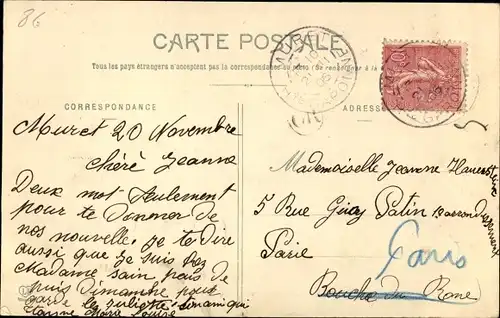 86
CARTE POSTALE
Tous les pays étrangers n'acceptent pas la correspondance au
CORRESPONDANCE
ADRESSE
Muret 20 Novembre
chéré Jeanne
Deux mot seulement
pour te donner de
nos nouvelle, je te dire
aussi que je suis
Madame sain pais de
puis Dimanche pour
garde la juliette
Jeanne Marie Louise
Mademoiselle Jeanne
5 Rue Guy Patin
Parie
Paris
Bouche du Rone